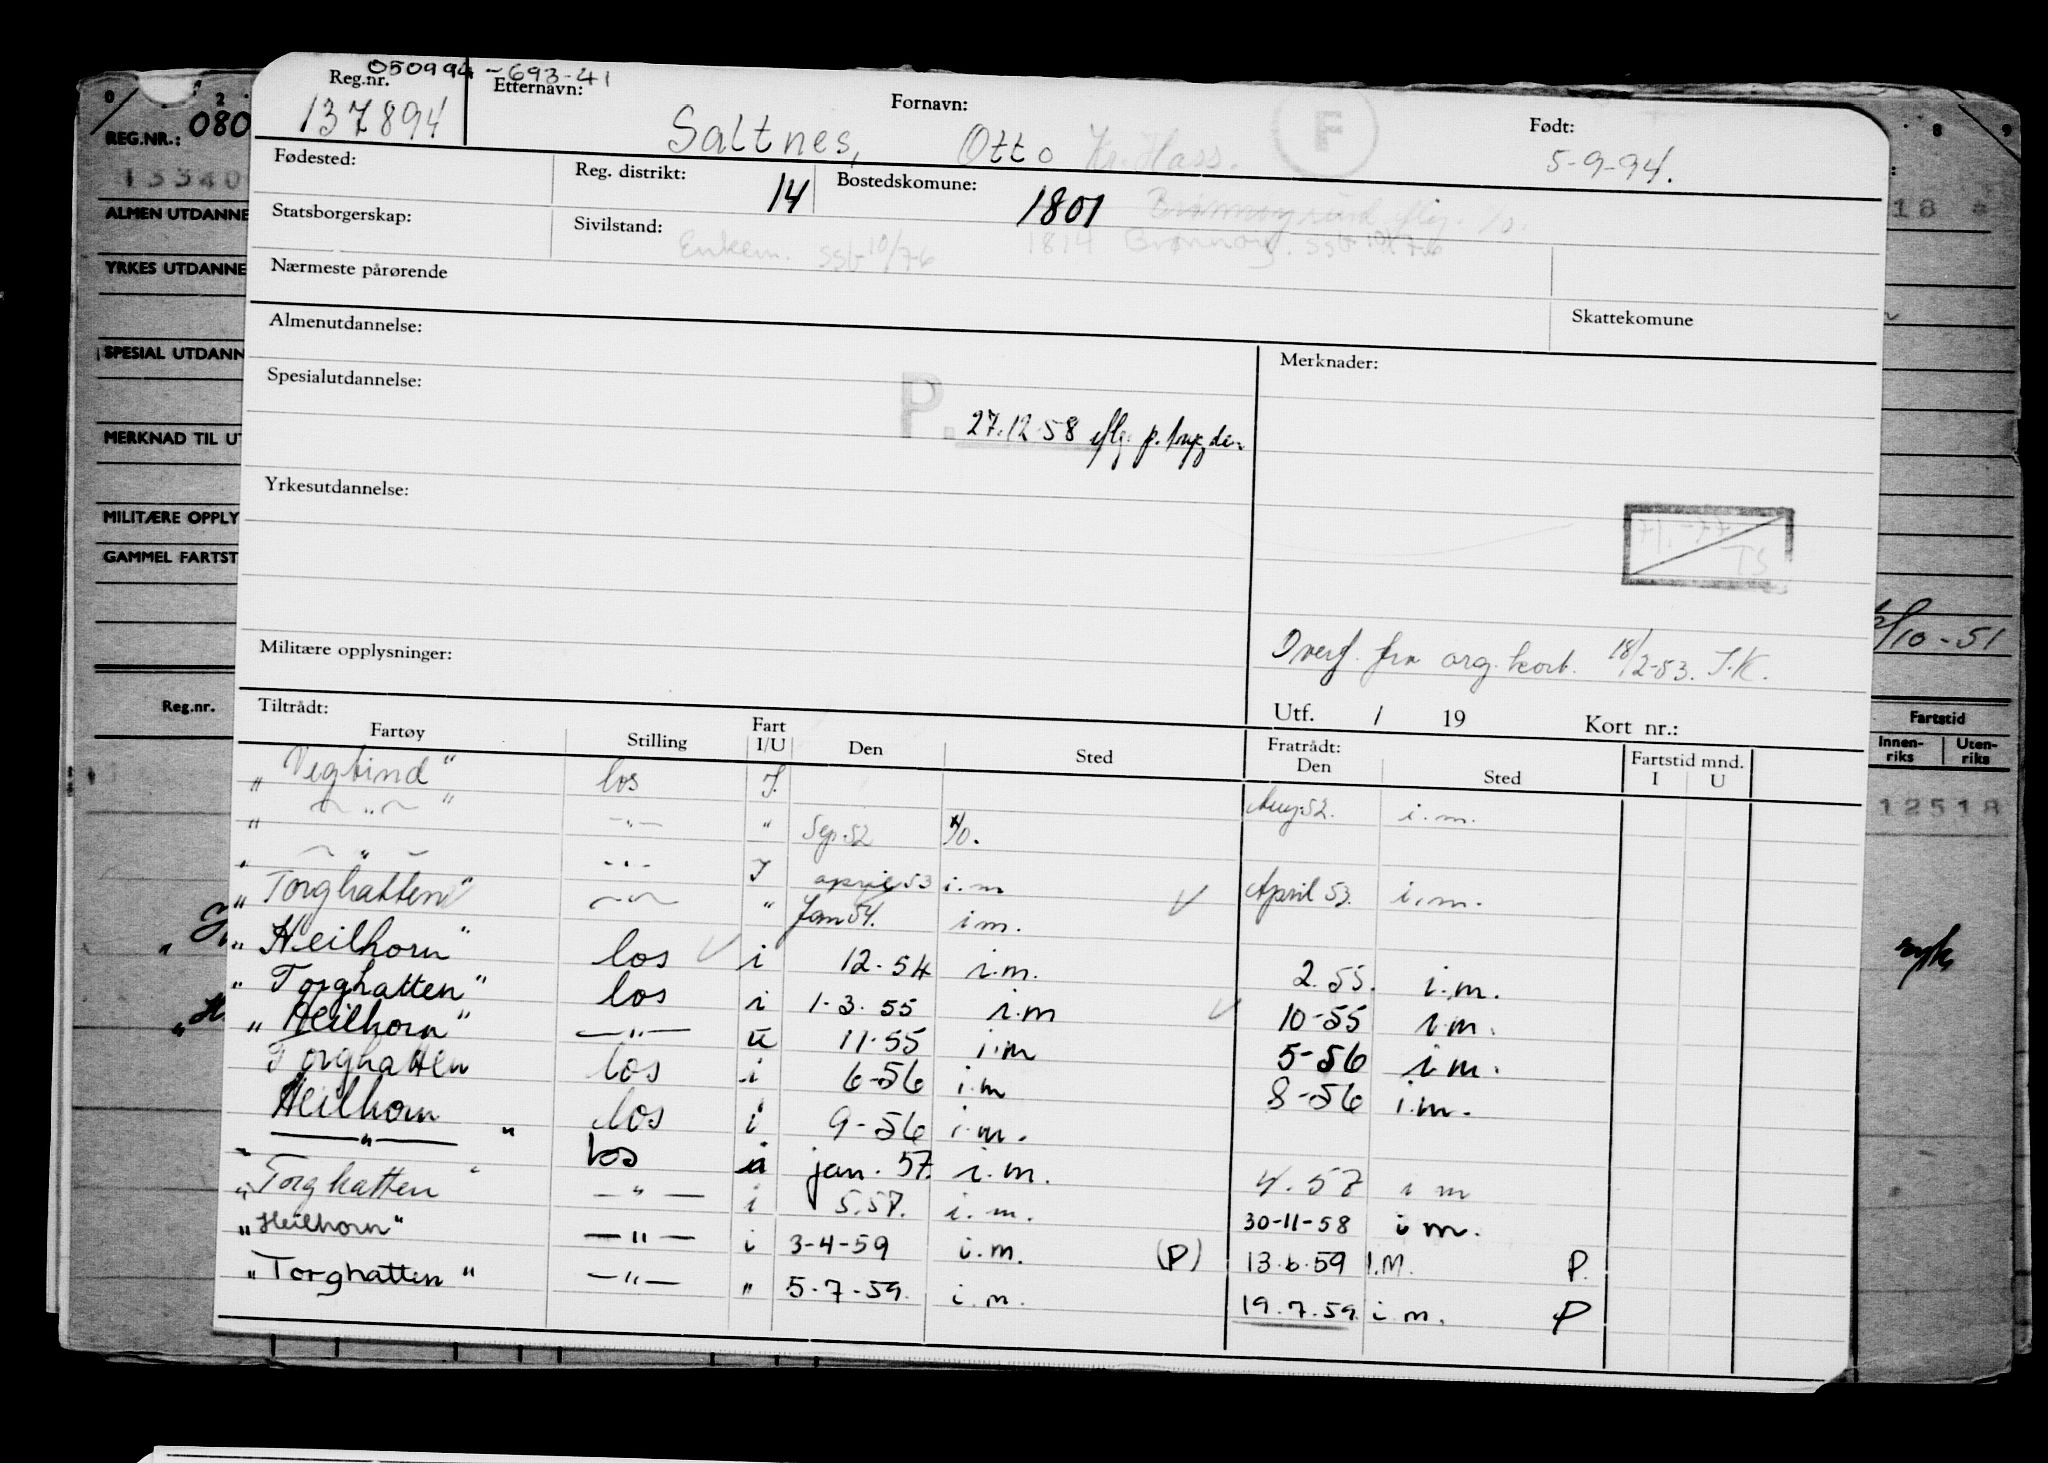 050994-693-41
Reg.nr. Etternavn: Fornavn: Født:
137894 Saltnes, Otto Kr. Hass. F 5-9-94.
Fødested: Reg. distrikt: 14 Bostedskomune: 1801
Statsborgerskap: Sivilstand: Enkem. ssb 10/76 1814 Brønnøy. ssb 10/76
Nærmeste pårørende
Skattekomune
Almenutdannelse:
Merknader:
Spesialutdannelse:
P. 27.12.58 iflg. p. trygden
Yrkesutdannelse:
TS
Militære opplysninger:
Overf. fra org. kort. 18/2-53. J.K.
Utf. / 19 Kort nr.:
Tiltrådt: Fratrådt: Fartstid mnd.
Fartøy Stilling Fart I/U Den Sted Den Sted I U
"Vegtind" los I. Aug 52. i.m.
" — " — " —"— " Sep. 52 i.m. April 53. i.m.
" — " — —"— I april 53 i.m
"Torghatten" —"— " Jan 54. i m.
"Heilhorn" los i 12.54 i.m. 2.55. i.m.
"Torghatten" los i 1.3.55 i.m 10-55 i.m.
"Heilhorn" —"— i 11.55 i.m 5-56 i.m.
Torghatten los i 6-56 i.m 8-56 i.m.
Heilhorn los i 9-56 i.m.
" —"— " los i jan. 57. i.m. 4.57 i m
"Torghatten" —"— i 5.57. i.m. 30-11-58 i m.
"Heilhorn" —"— i 3-4-59 i.m. (P) 13.6.59 I.M. P.
"Torghatten" —"— " 5-7-59. i.m. 19.7.59. i.m. P
0 2 8 9
REG.NR.: 080
13340
18
ALMEN UTDANNE
YRKES UTDANNE
SPESIAL UTDANN
MERKNAD TIL U
MILITÆRE OPPLY
GAMMEL FARTST
/10-51
Reg.nr.
Fartstid
Innen-riks Uten-riks
12518